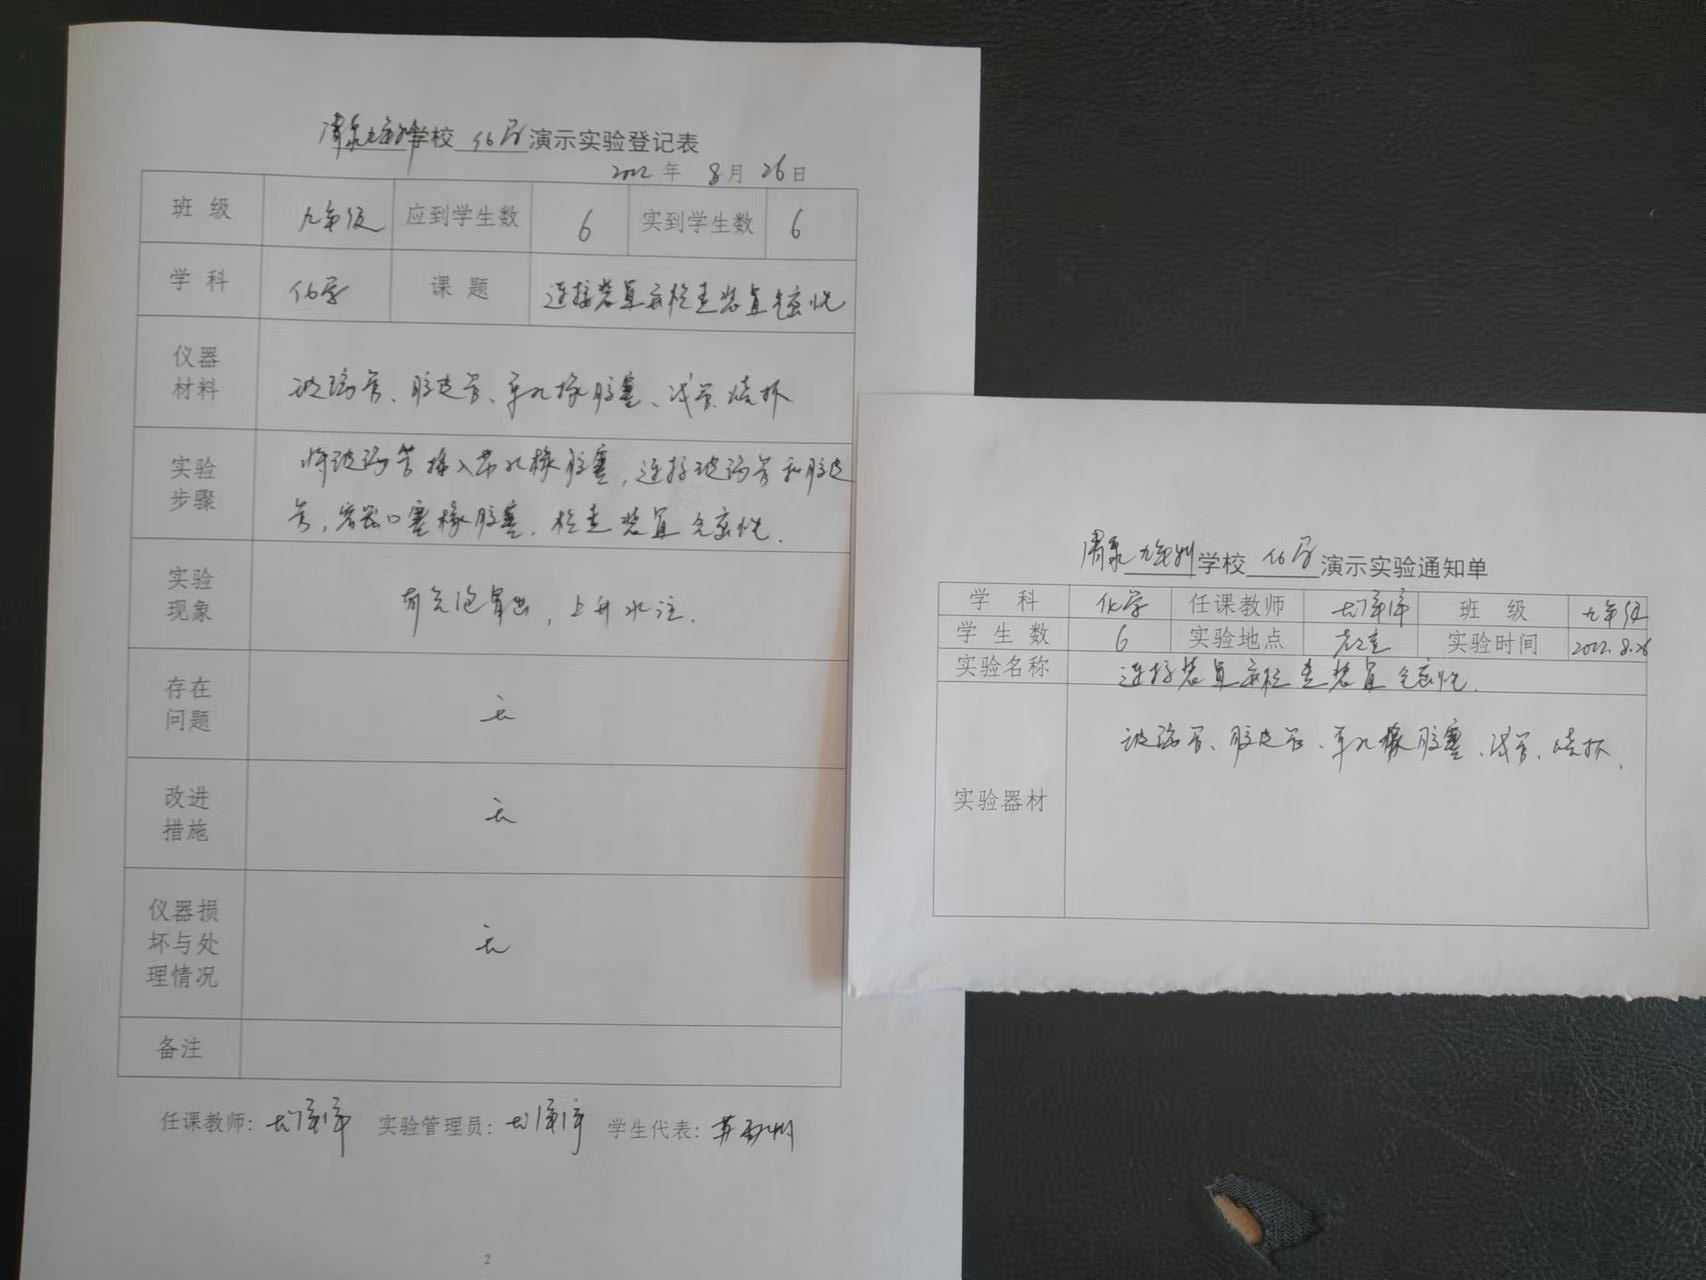 清泉九年制学校 化学 演示实验登记表
2022 年 8 月 26 日
班 级 九年级 应到学生数 6 实到学生数 6
学 科 化学 课 题 连接装置并检查装置气密性
仪器材料 玻璃管、胶皮管、单孔橡胶塞、试管、烧杯
实验步骤 将玻璃管插入带孔橡胶塞,连接玻璃管和胶皮
管,容器口塞橡胶塞.检查装置气密性.
实验现象 有气泡冒出,上升水注.
存在问题 无
改进措施 无
仪器损坏与处理情况 无
备注
任课教师: 实验管理员: 学生代表:
2
清泉九年制学校 化学 演示实验通知单
学 科 化学 任课教师 班 级 九年级
学 生 数 6 实验地点 实验时间 2022.8.26
实验名称 连接装置并检查装置气密性.
实验器材 玻璃管、胶皮管、单孔橡胶塞、试管、烧杯.